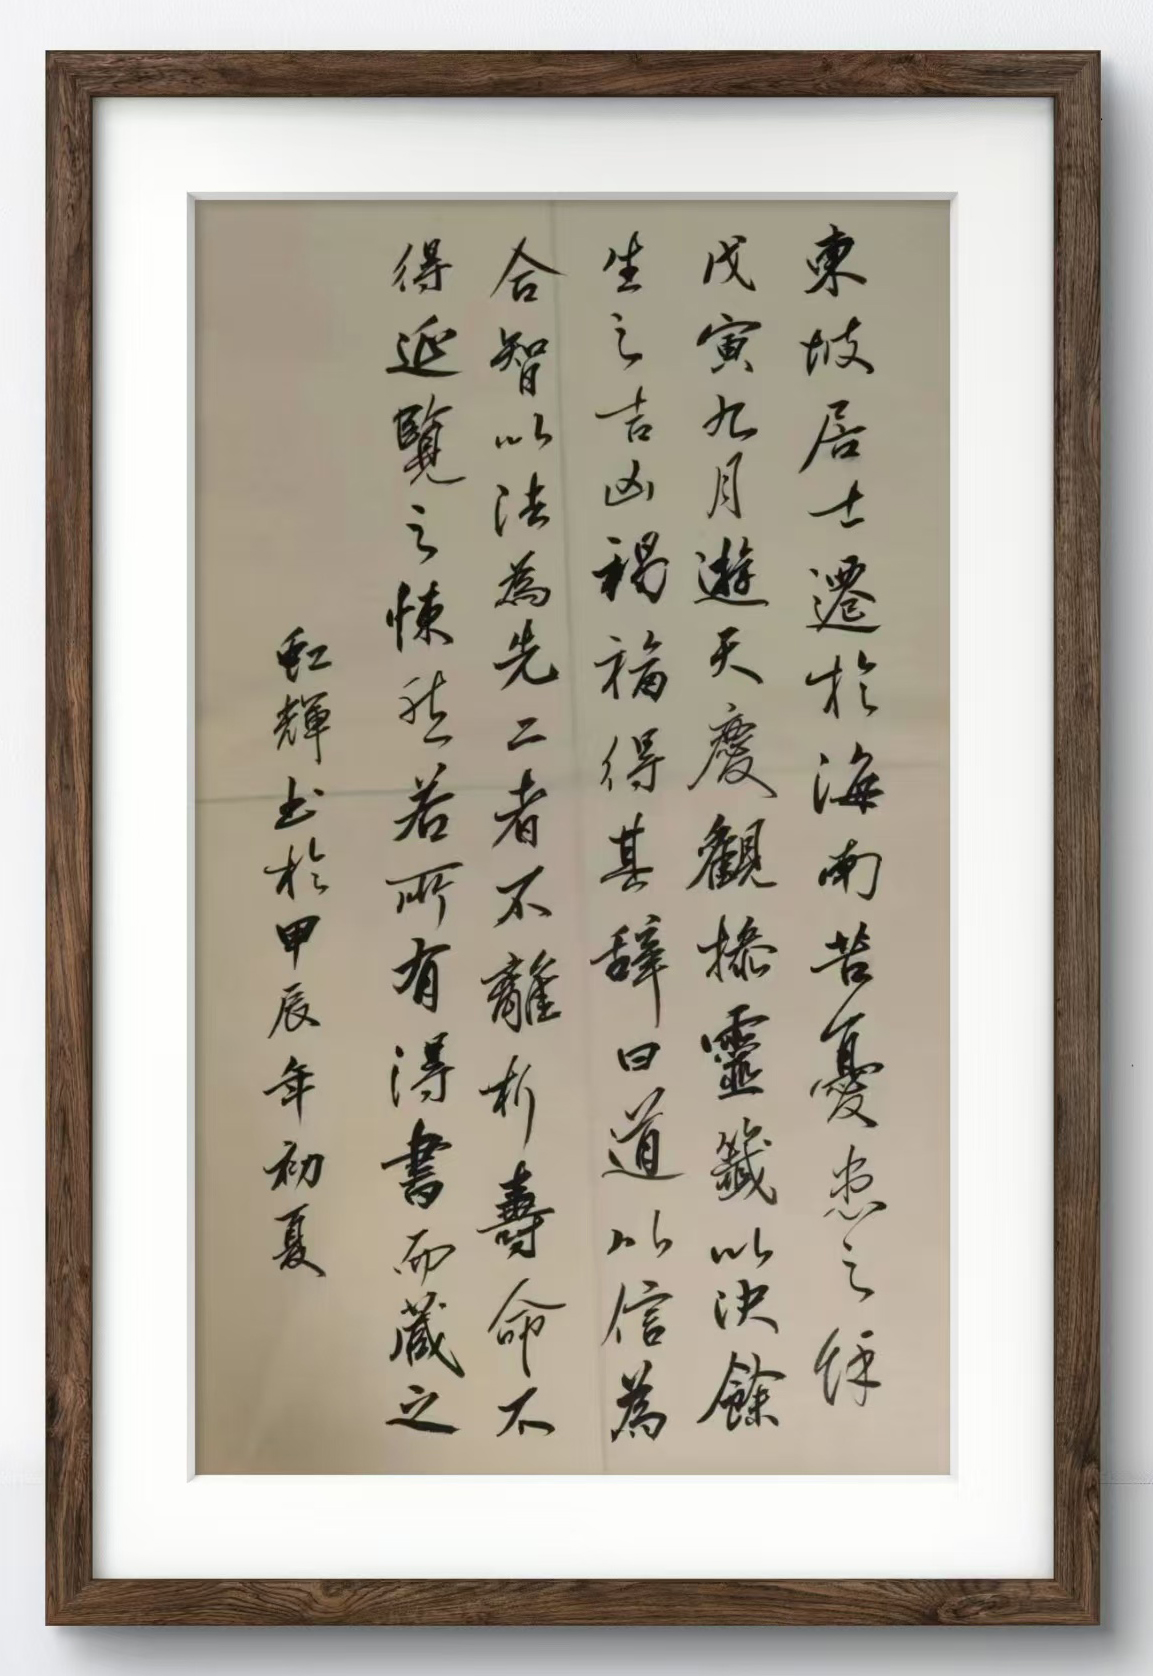 東坡居士遷於海南苦憂患之餘
戊寅九月遊天慶觀操靈籤以決餘
生之吉凶禍福得其辭曰道以信為
合智以法為先二者不離析壽命不
得延覽之悚然若所有得書而藏之
虹輝書於甲辰年初夏